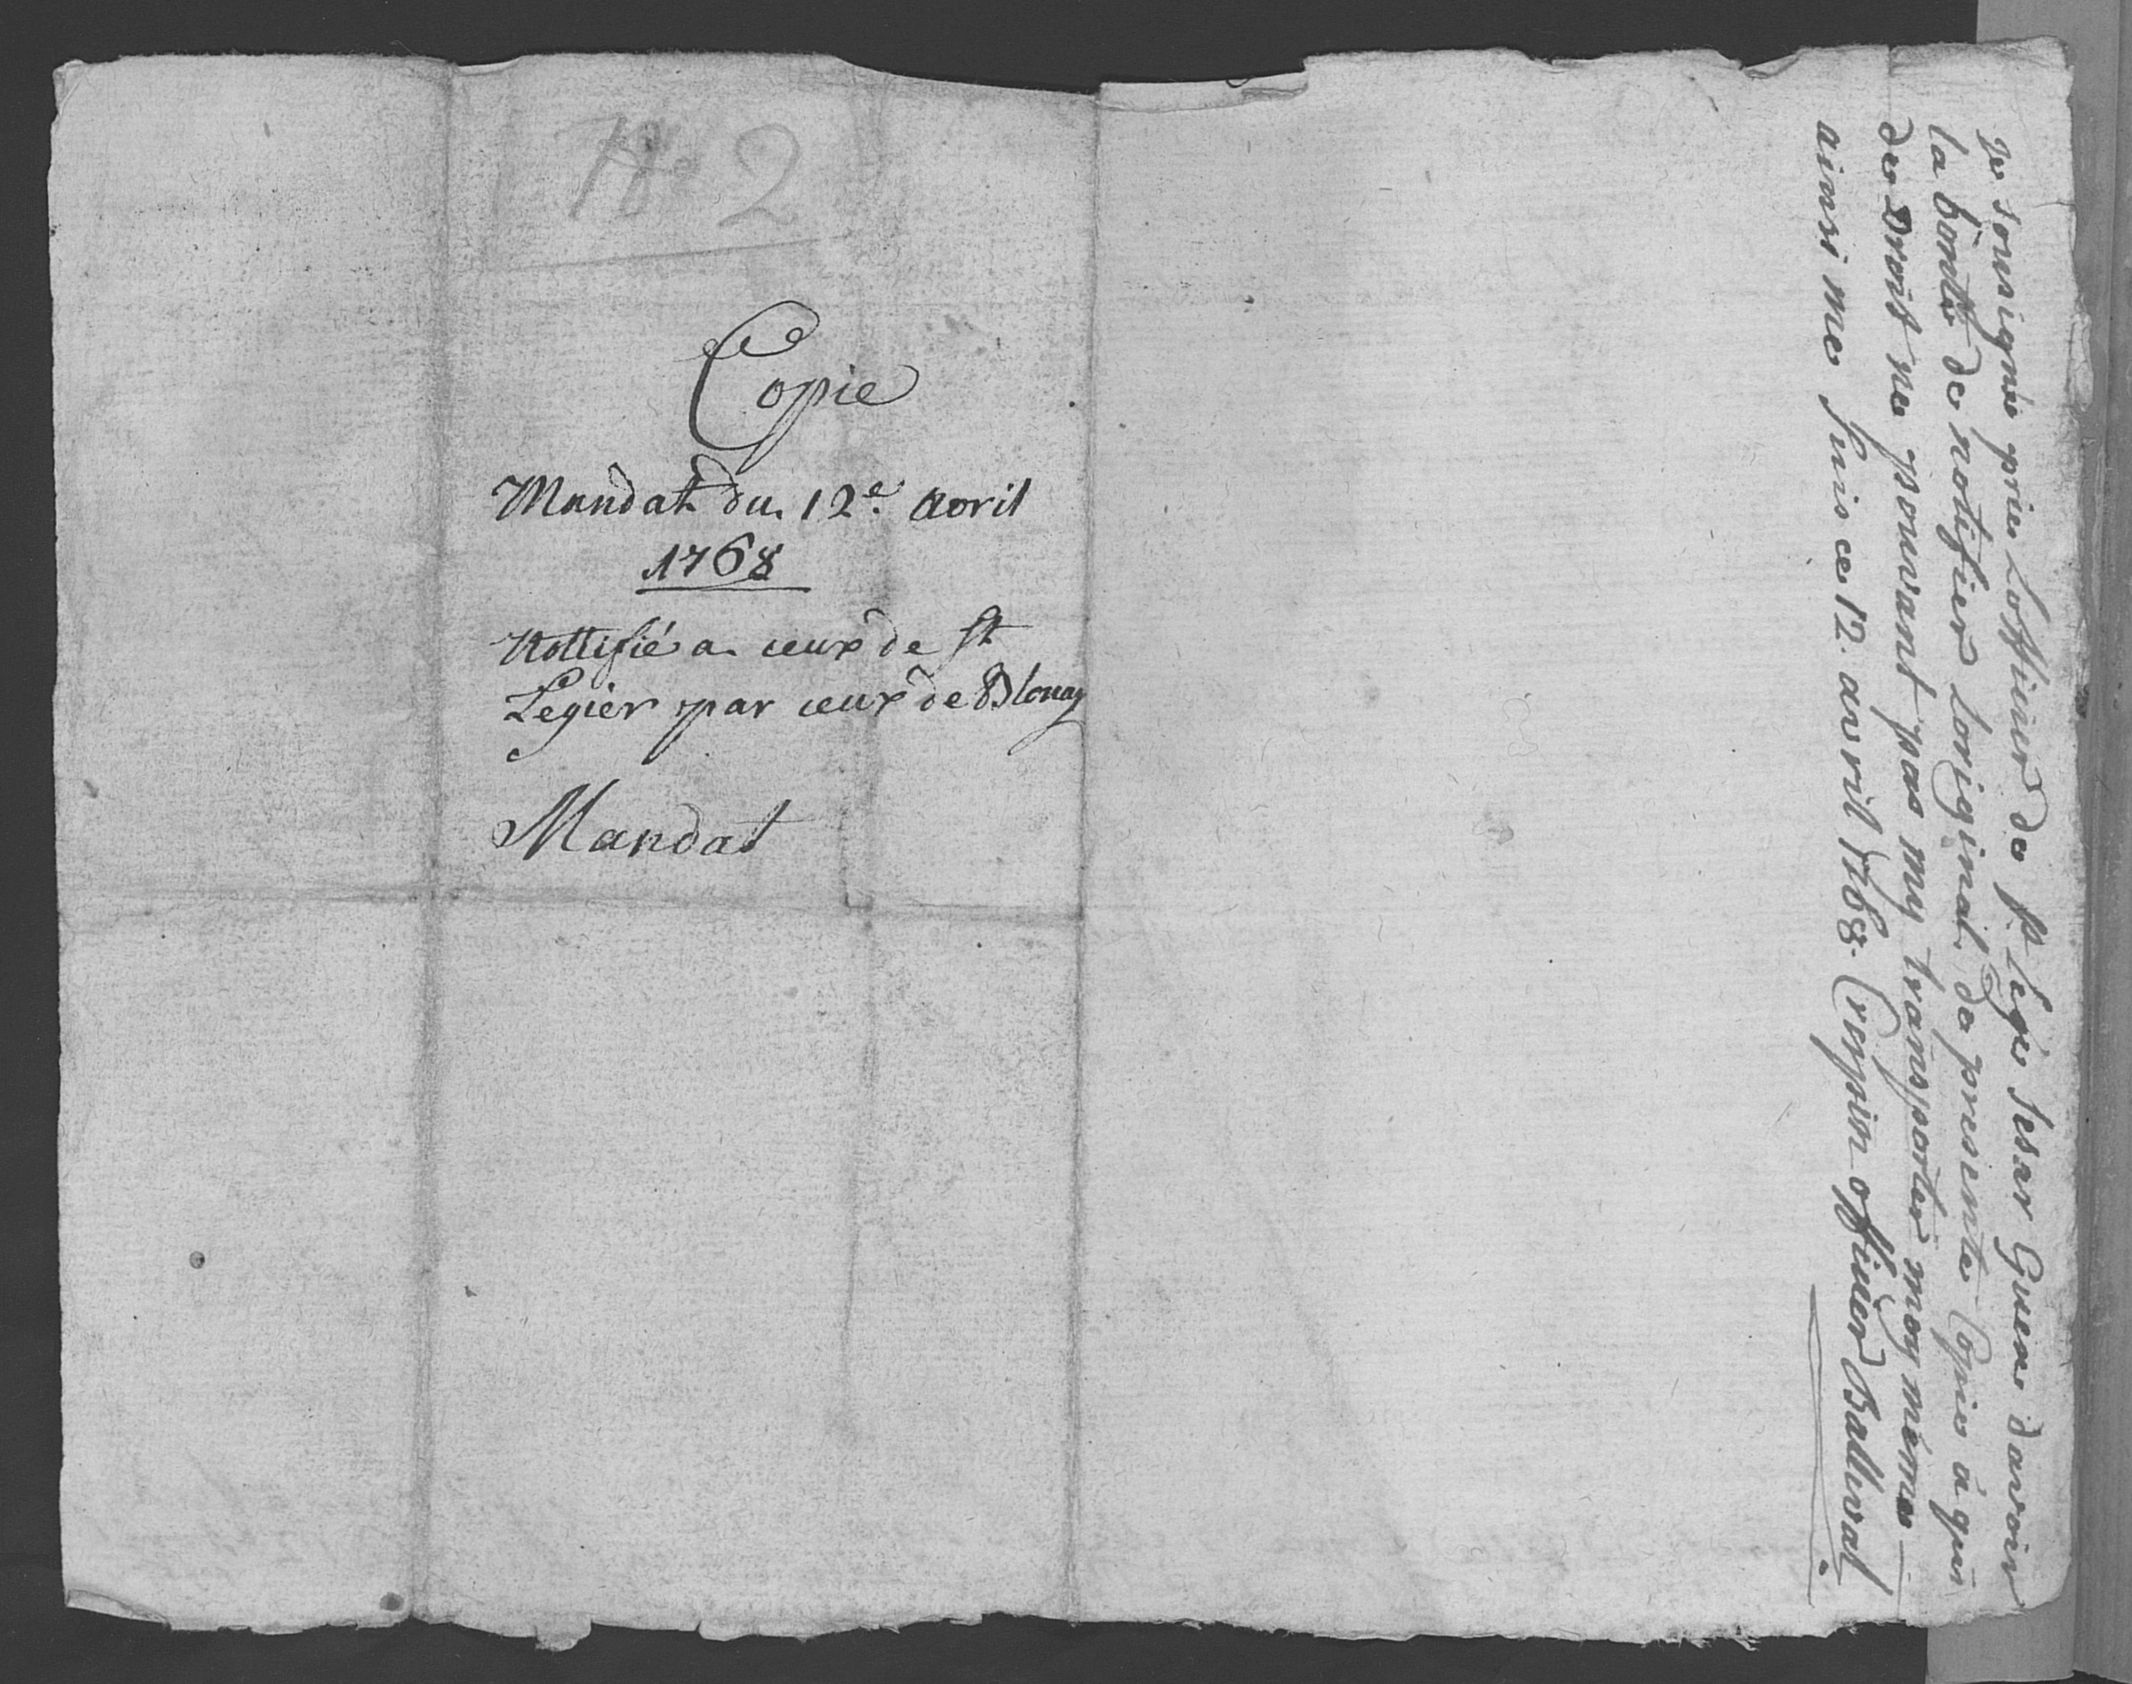 No 2
Copie
Mandat du 12e. avril
1768
Nottifié a ceux de St
Legier par ceux de Blonay
Mandat
Je sousigné prie Loffieier de St. Legié Sesar Guex davoir
la bonté de notifier loriginal de presente Copie à qui
de Droit ne pouvant pas my transporter moy même
ainsi me suis ce 12. avril 1768. Crespin officier Ballival